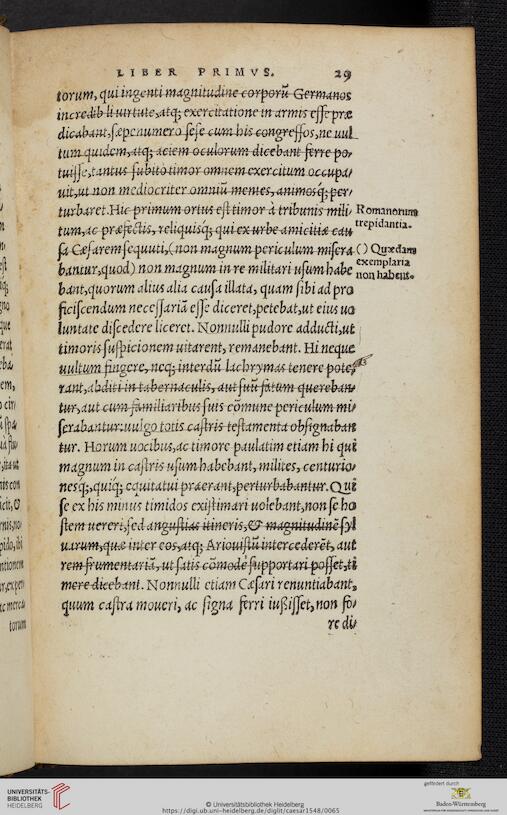 LIBER PRIMVS. 29
torum, qui ingenti magnitudine corporũ Germanos
incredib li uirtute, atq; exercitatione in armis esse præ
dicabant, sæpenumero sese cum his congressos, ne uul
tum quidem, atq; aciem oculorum dicebant ferre po/
tuisse, tantus subito timor omnem exercitum occupa/
uit, ut non mediocriter omniũ mentes, animosq; per/
turbaret. Hic primum ortus est timor à tribunis mili
tum, ac præfectis, reliquisq; qui ex urbe amicitiæ cau
sa Cæsarem sequuti, (non magnum periculum misera
bantur, quod) non magnum in re militari usum habe
bant, quorum alius alia causa illata, quam sibi ad pro
ficiscendum necessariã esse diceret, petebat, ut eius uo
luntate discedere liceret. Nonnulli pudore adducti, ut
timoris suspicionem uitarent, remanebant. Hi neque
uultum fingere, neq; interdũ lachrymas tenere pote/
rant, abditi in tabernaculis, aut suũ fatum quereban/
tur, aut cum familiaribus suis cõmune periculum mi/
serabantur: uulgo totis castris testamenta obsignaban
tur. Horum uocibus, ac timore paulatim etiam hi qui
magnum in castris usum habebant, milites, centurio/
nesq;, quiq; equitatui præerant, perturbabantur. Qui
se ex his minus timidos existimari uolebant, non se ho
stem uereri, sed angustias itineris, & magnitudinẽ syl
uarum, quæ inter eos, atq; Ariouistũ intercederẽt, aut
rem frumentariã, ut satis cõmodè supportari posset, ti
mere dicebant. Nonnulli etiam Cæsari renuntiabant,
quum castra moueri, ac signa ferri iußisset, non fo/
re di/
Romanorum
trepidantia.
( ) Quædam
exemplaria
non habent.
torum
UNIVERSITÄTS-
BIBLIOTHEK
HEIDELBERG
© Universitätsbibliothek Heidelberg
https://digi.ub.uni-heidelberg.de/diglit/caesar1548/0065
gefördert durch
Baden-Württemberg